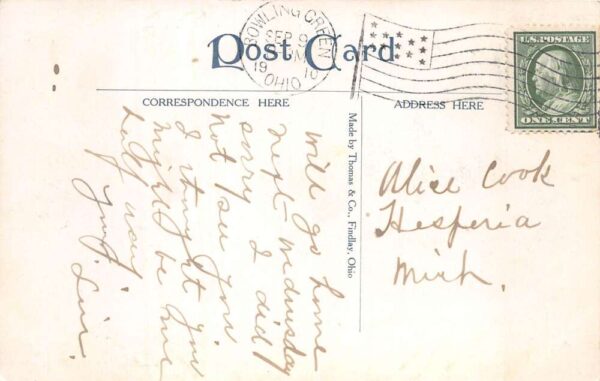 Post Card
BOWLING GREEN
SEP 9
M
19 10
OHIO
U.S. POSTAGE
ONE CENT
CORRESPONDENCE HERE
ADDRESS HERE
Made by Thomas & Co., Findlay, Ohio
Will go home
next Wednesday
sorry I did
not see you
I thought you
might be here
half way
Alice Cook
Hesperia
Mich.